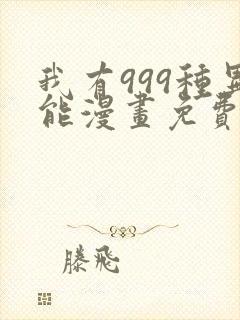 我有999種異
能漫畫免費
滕飛